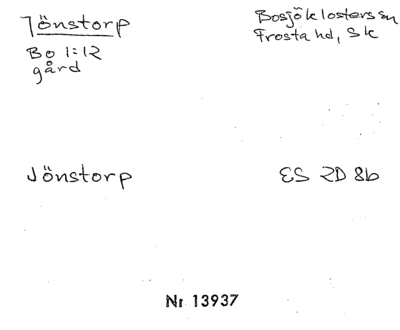 Jönstorp
Bosjöklosters sn
Bo 1:12
Frosta hd, Sk
gård
Jönstorp
ES 2D 8b
Nr 13937